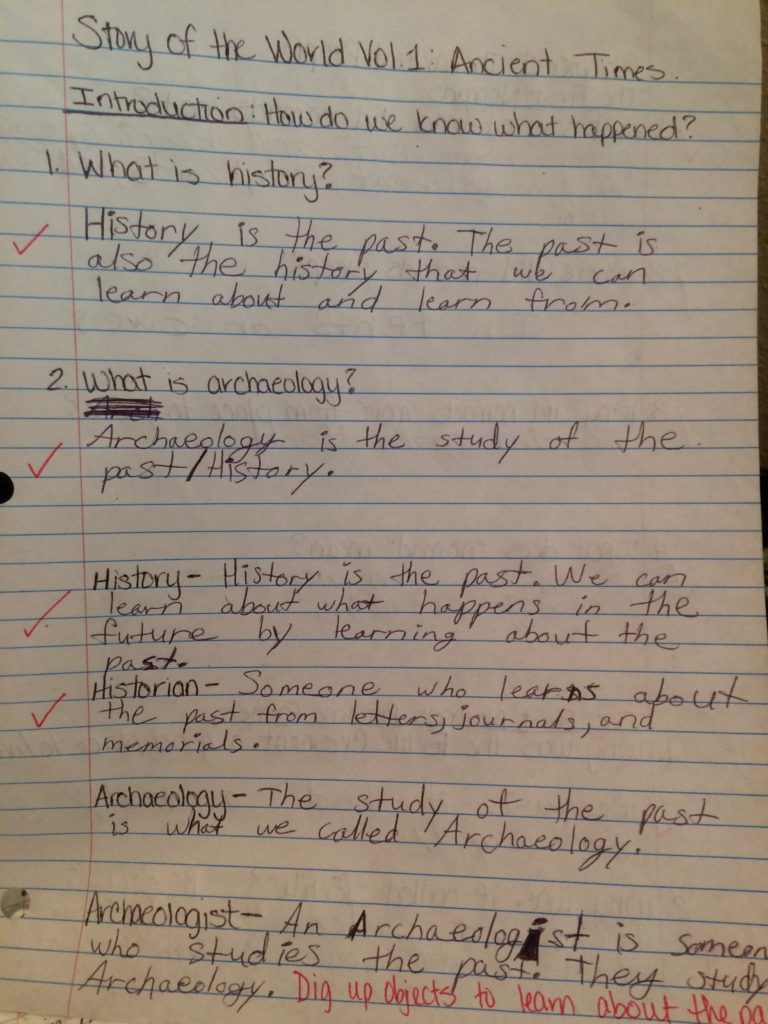 Story of the World Vol.1: Ancient Times.
Introduction: How do we know what happened?
1. What is history?
History is the past. The past is
also the history that we can
learn about and learn from.
2. What is archaeology?
Archaeology is the study of the
past/History.
History- History is the past. We can
learn about what happens in the
future by learning about the
past.
Historian- Someone who learns about
the past from letters, journals, and
memorials.
Archaeology- The study of the past
is what we called Archaeology.
Archaeologist- An Archaeologist is someon
who studies the past. They study
Archaeology. Dig up objects to learn about the pa